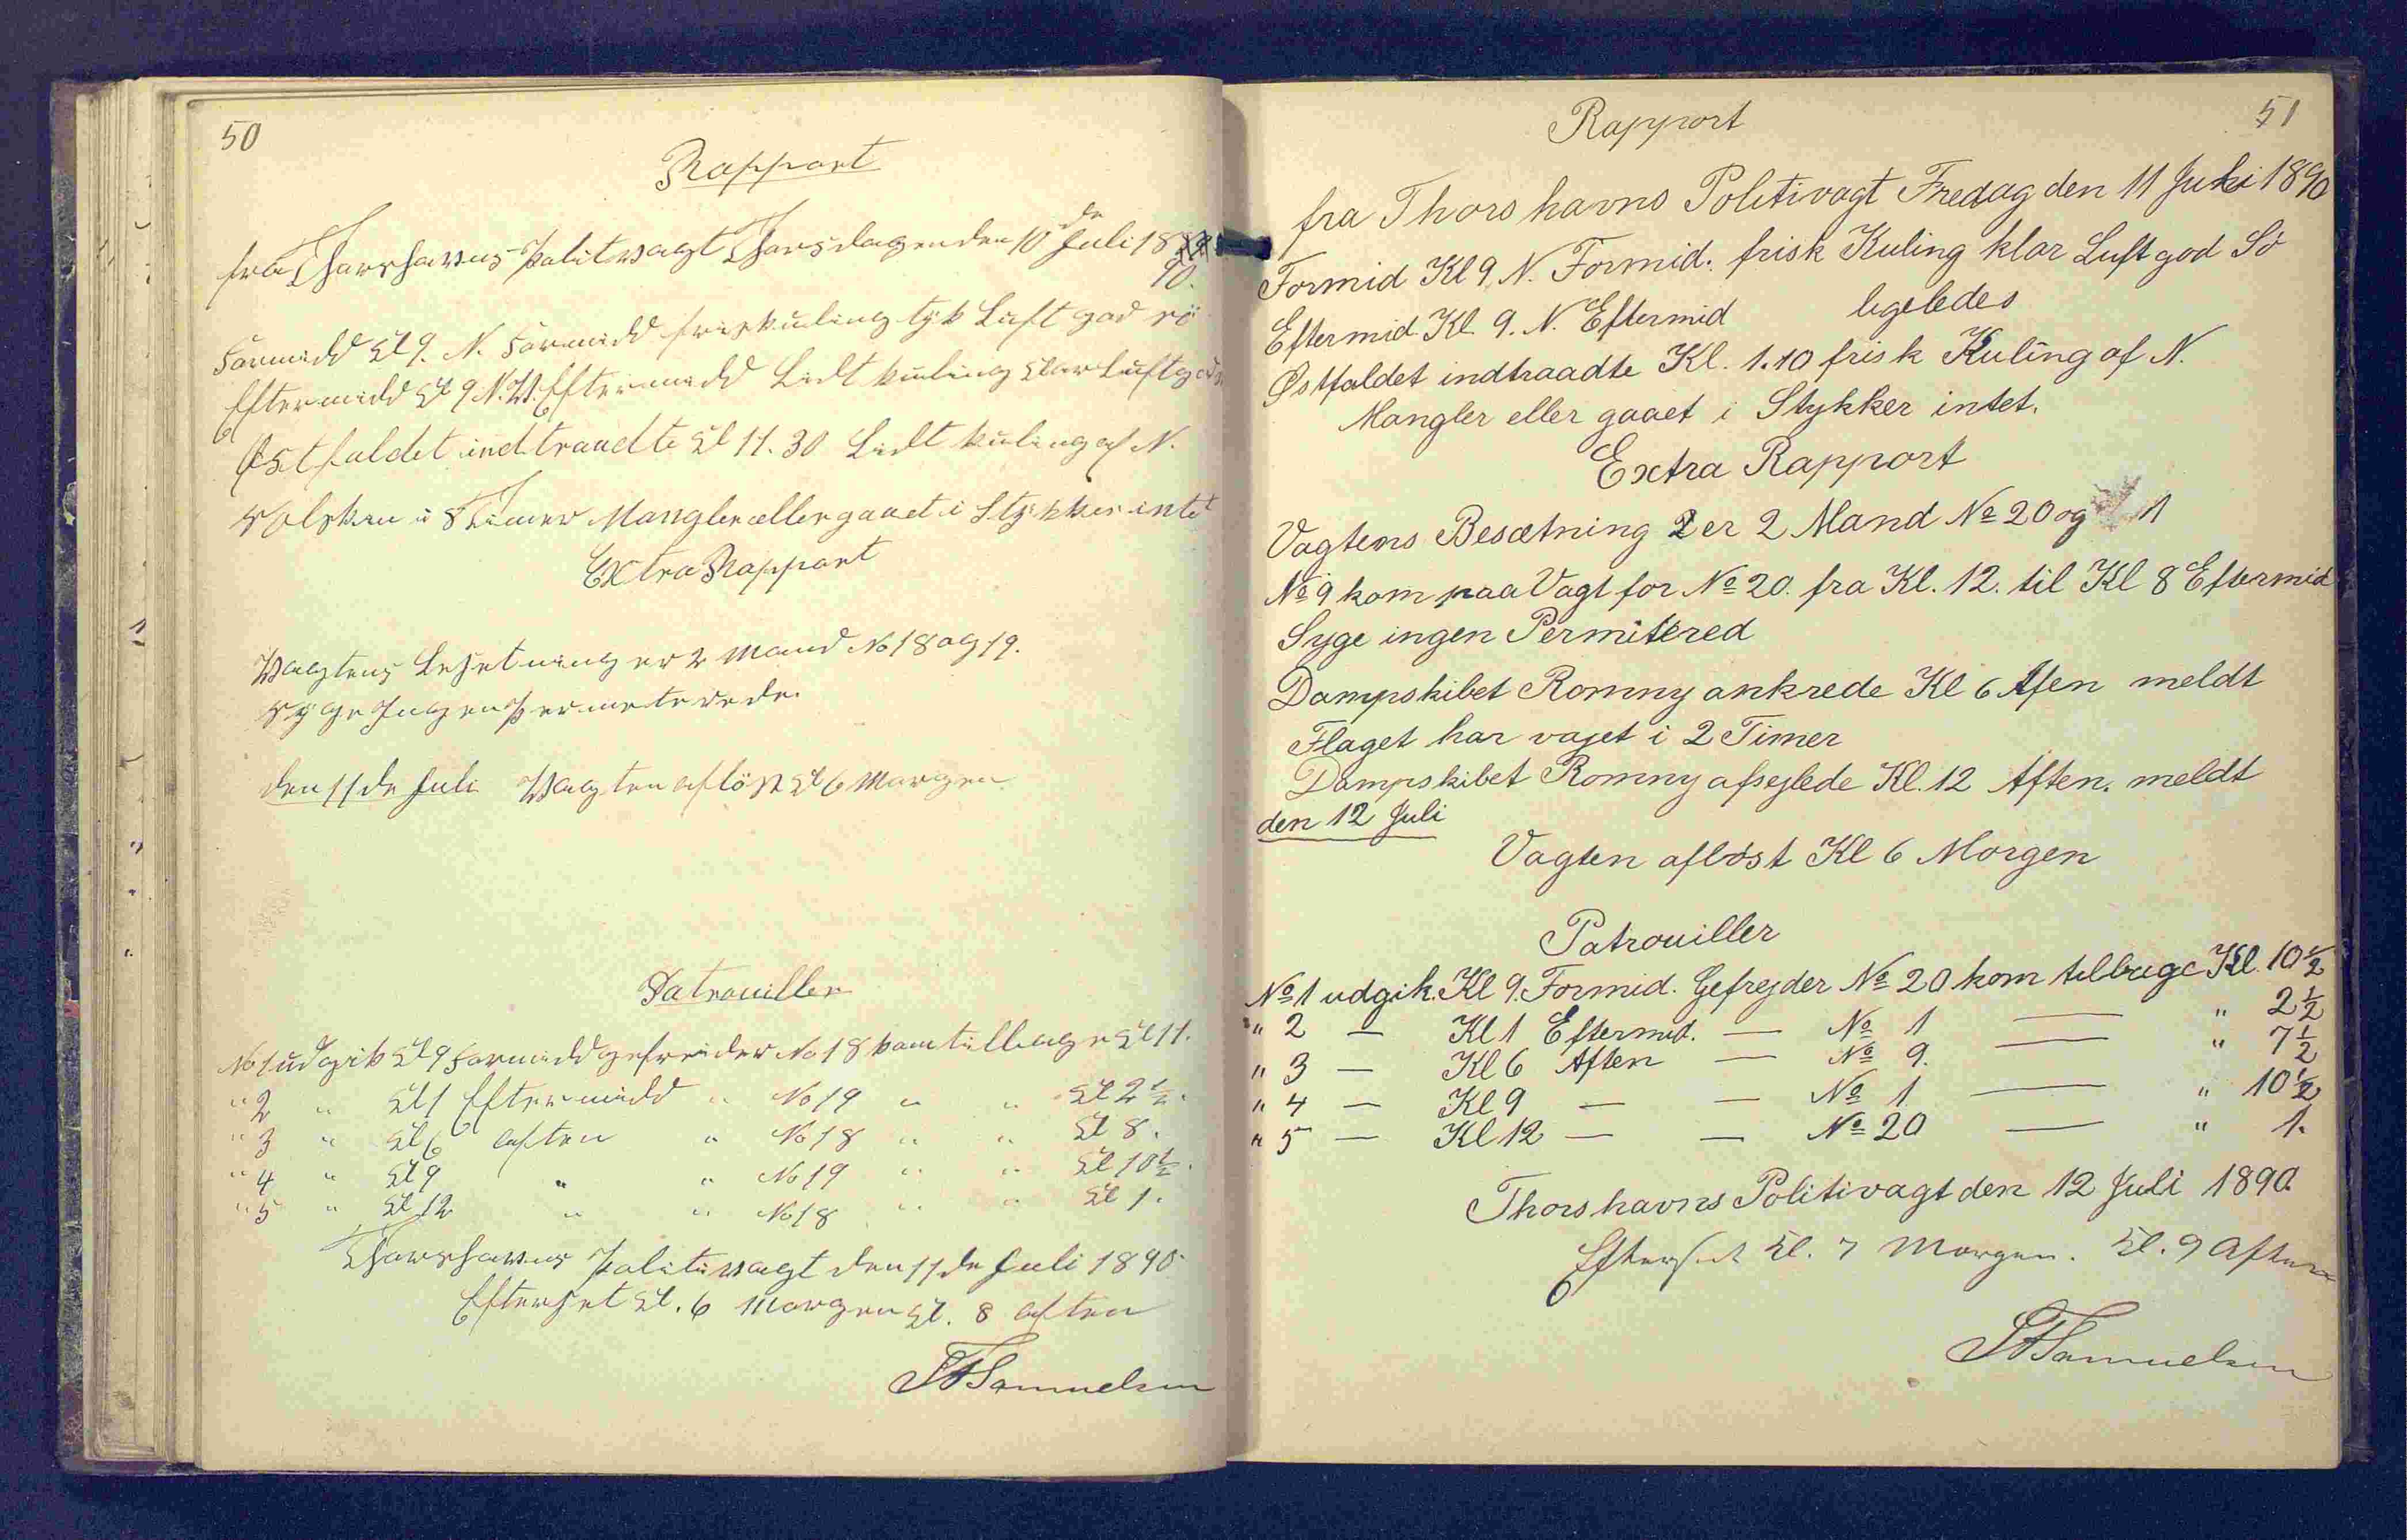 50
Rapport
fra Thorshavns Politivagt Thorsdagen den 10de Juli 18
90.
Formidd Kl 9. N. Formidd frisk kuling tyk Luft god sö
Eftermidd Kl 9 N.W. Eftermidd Lidt kuling klar Luft god
Østfaldet indtraadte Kl 11.30 Lidt kuling af N.
Solskin i 8 Timer Mangler eller gaaet i Stykker intet
Extra Rapport
Vagtens Besetning er 2 Mand No 18 og 19.
Syge Ingen Permeterede.
den 11de Juli Vagten aflöst Kl 6 Morgen
Patrouiller
No 1 udgik Kl 9 Formidd gefreider No 18 kom tilbage Kl 11.
" 2 " Kl 1 Eftermidd " No 19 " " Kl 2 1/2.
" 3 " Kl 6 aften " No 18 " " Kl 8.
" 4 " Kl 9 " " No 19 " " Kl 10 1/2.
" 5 " Kl 12 " " No 18 " " Kl 1.
Thorshavns Politivagt den 11de Juli 1890
Efterset Kl. 6 Morgen Kl. 8 aften
Samuelsen
51
Rapport
fra Thorshavns Politivagt Fredag den 11 Juli 1890
Formid Kl 9. N. Formid. frisk Kuling klar Luft god Sö
Eftermid Kl. 9. N. Eftermid ligeledes
Østfaldet indtraadte Kl. 1.10 frisk Kuling af N.
Mangler eller gaaet i Stykker intet.
Extra Rapport
Vagtens Besætning er 2 Mand No 20 og 1
No 9 kom paa Vagt for No 20. fra Kl. 12. til Kl 8 Eftermid
Syge ingen Permitered
Dampskibet Romny ankrede Kl 6 Afen meldt
Flaget har vajet i 2 Timer
Dampskibet Romny afsejlede Kl. 12 Aften. meldt
den 12 Juli
Vagten aflöst Kl 6 Morgen
Patrouiller
No 1 udgik. Kl 9. Formid. Gefrejder No 20 kom tilbage Kl. 10 1/2
" 2 — Kl 1 Eftermid. — No 1 — " 2 1/2
" 3 — Kl 6 Aften — No 9. — " 7 1/2
" 4 — Kl 9 — — No 1 — " 10 1/2
" 5 — Kl 12 — — No 20 — " 1.
Thorshavns Politivagt den 12 Juli 1890
Efterset Kl. 7 Morgen. Kl. 9 Aften
Samuelsen